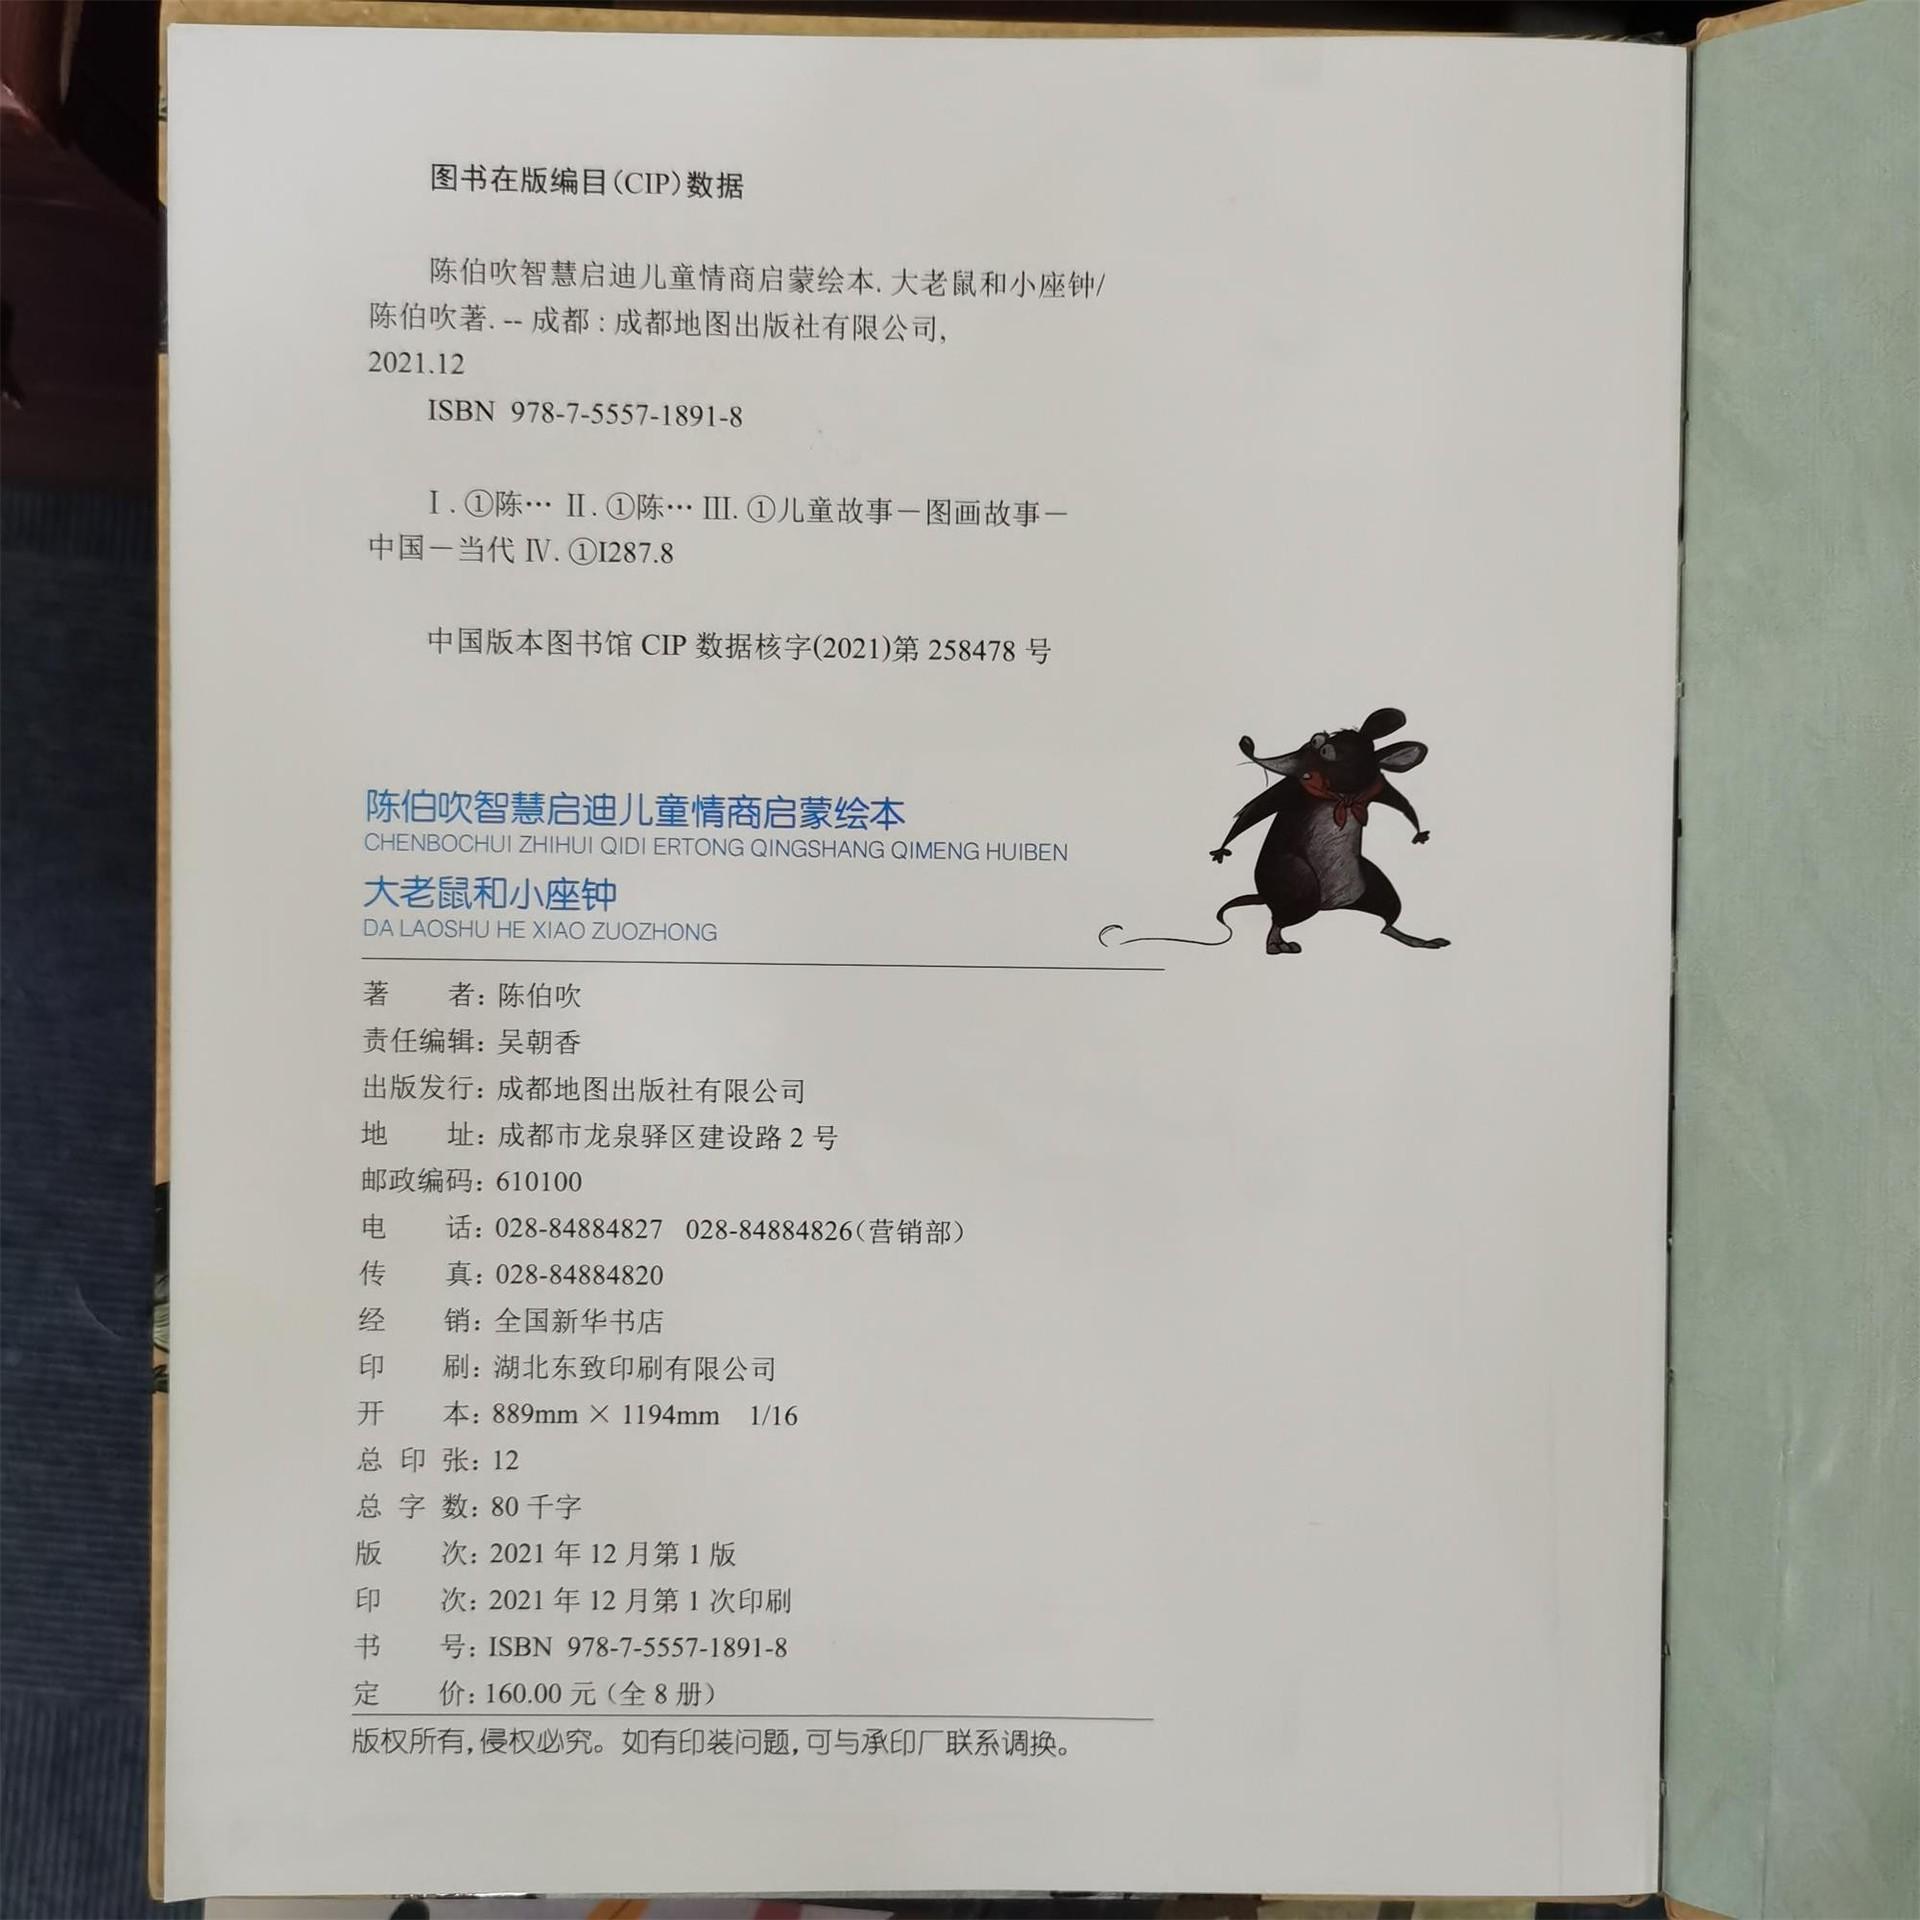 图书在版编目(CIP)数据
陈伯吹智慧启迪儿童情商启蒙绘本. 大老鼠和小座钟/
陈伯吹著. -- 成都 : 成都地图出版社有限公司,
2021.12
ISBN 978-7-5557-1891-8
Ⅰ. ①陈… Ⅱ. ①陈… Ⅲ. ①儿童故事－图画故事－
中国－当代 Ⅳ. ①I287.8
中国版本图书馆 CIP 数据核字(2021)第 258478 号
陈伯吹智慧启迪儿童情商启蒙绘本
CHENBOCHUI ZHIHUI QIDI ERTONG QINGSHANG QIMENG HUIBEN
大老鼠和小座钟
DA LAOSHU HE XIAO ZUOZHONG
著 者: 陈伯吹
责任编辑: 吴朝香
出版发行: 成都地图出版社有限公司
地 址: 成都市龙泉驿区建设路 2 号
邮政编码: 610100
电 话: 028-84884827 028-84884826(营销部)
传 真: 028-84884820
经 销: 全国新华书店
印 刷: 湖北东致印刷有限公司
开 本: 889mm × 1194mm 1/16
总 印 张: 12
总 字 数: 80 千字
版 次: 2021 年 12 月第 1 版
印 次: 2021 年 12 月第 1 次印刷
书 号: ISBN 978-7-5557-1891-8
定 价: 160.00 元(全 8 册)
版权所有,侵权必究。如有印装问题,可与承印厂联系调换。